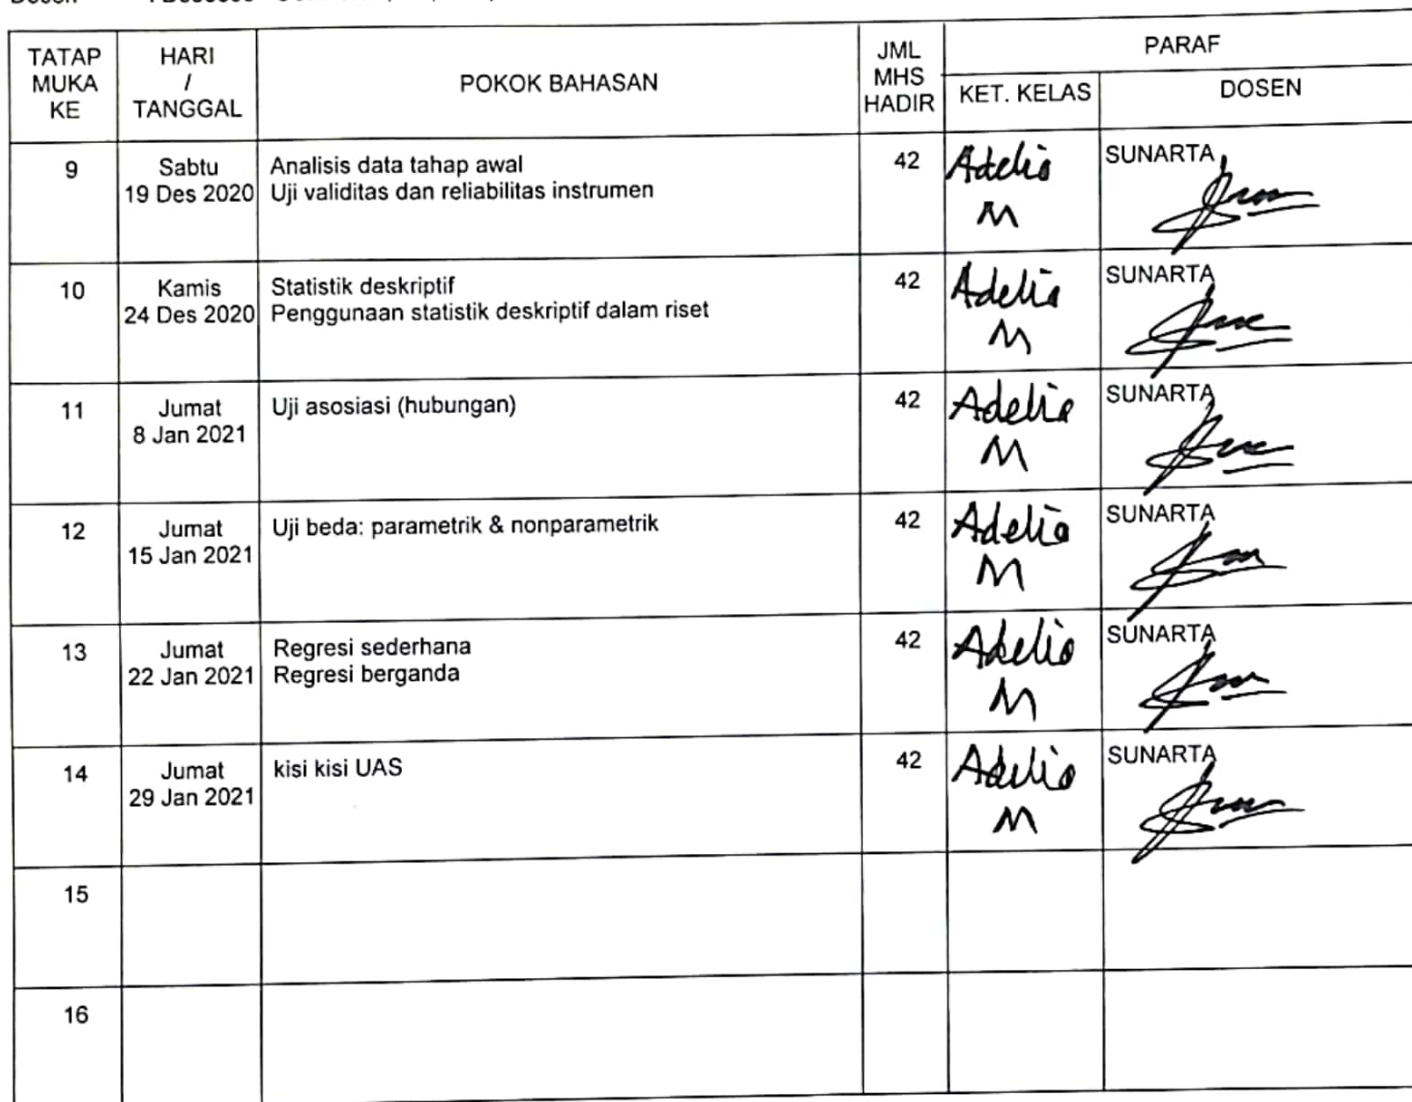 Dosen
TATAP MUKA KE
HARI / TANGGAL
POKOK BAHASAN
JML MHS HADIR
PARAF
KET. KELAS
DOSEN
9
Sabtu
19 Des 2020
Analisis data tahap awal
Uji validitas dan reliabilitas instrumen
42
Adelia
M
SUNARTA
10
Kamis
24 Des 2020
Statistik deskriptif
Penggunaan statistik deskriptif dalam riset
42
Adelia
M
SUNARTA
11
Jumat
8 Jan 2021
Uji asosiasi (hubungan)
42
Adelia
M
SUNARTA
12
Jumat
15 Jan 2021
Uji beda: parametrik & nonparametrik
42
Adelia
M
SUNARTA
13
Jumat
22 Jan 2021
Regresi sederhana
Regresi berganda
42
Adelia
M
SUNARTA
14
Jumat
29 Jan 2021
kisi kisi UAS
42
Adelia
M
SUNARTA
15
16